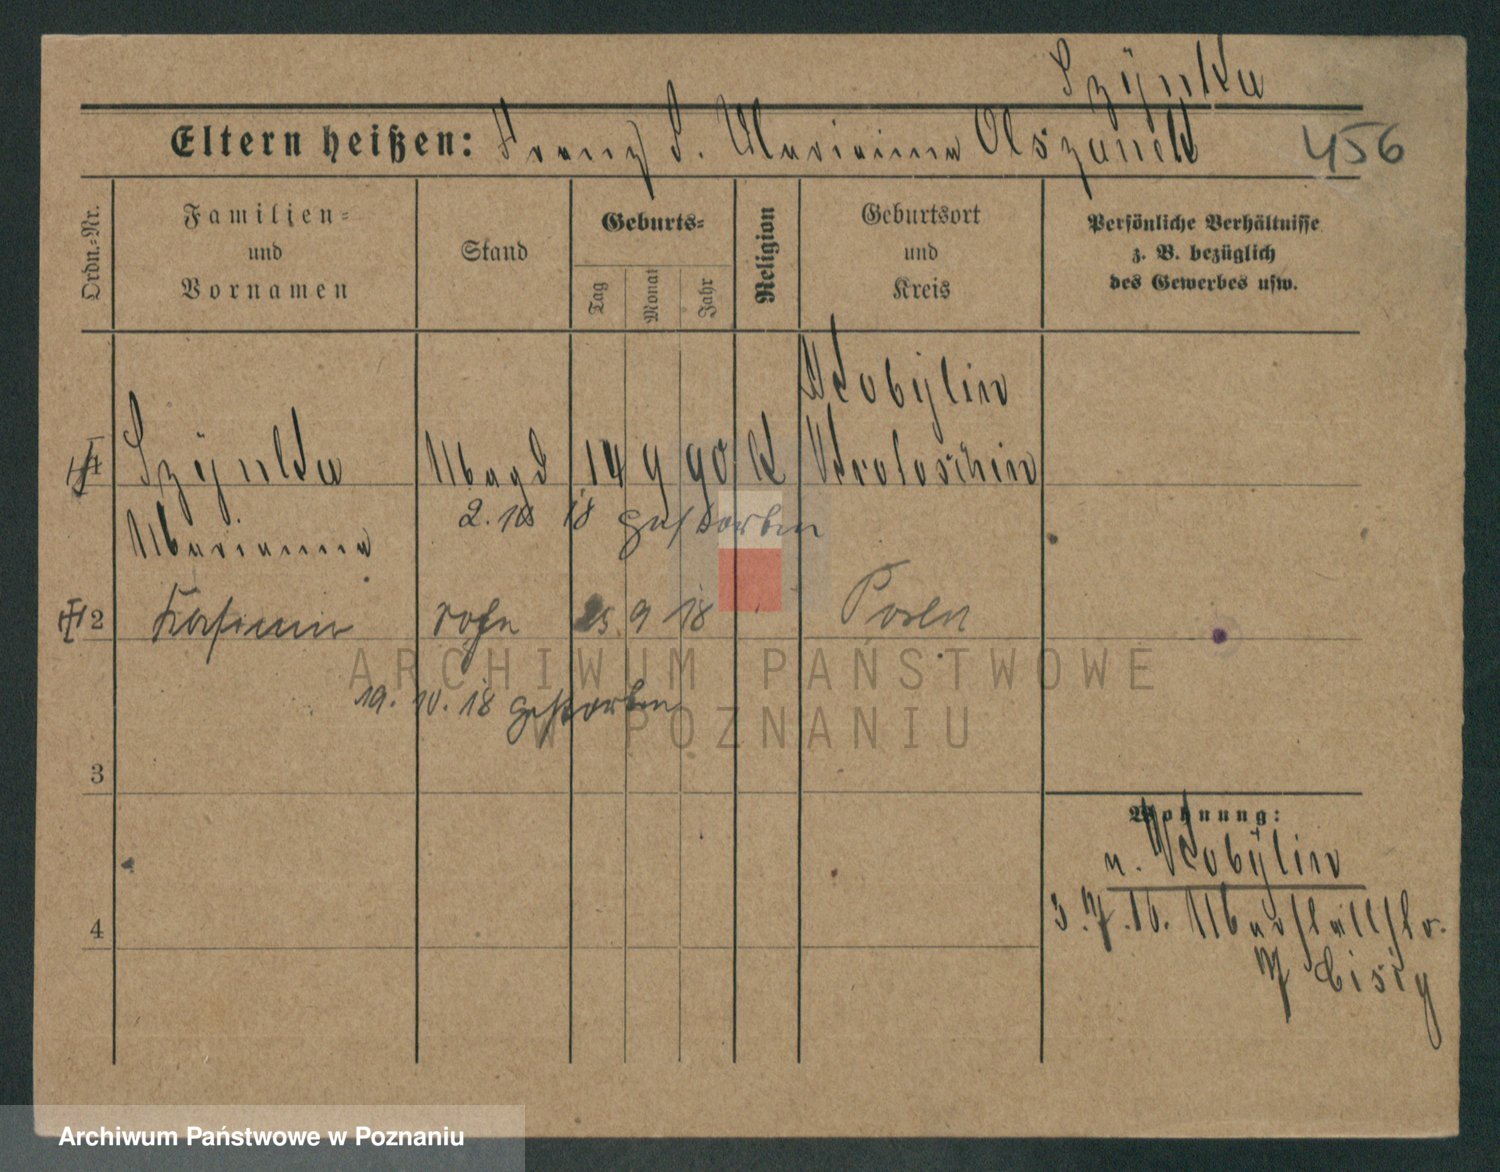 Szÿnka
Eltern heißen: Franz S. Marianna Olszanek
456
Ordn.=Nr.
Familien=
und
Vornamen
Stand
Geburts=
Tag
Monat
Jahr
Religion
Geburtsort
und
Kreis
Persönliche Verhältnisse
z. B. bezüglich
des Gewerbes usw.
Kobÿlin
1 Szÿnka Magd 14 9 90 K Krotoschin
2. 10 18 gestorben
Marianna
2 Kasimir Sohn 25 9 18 Posen
ARCHIWUM PAŃSTWOWE
19. 10. 18 gestorben
W POZNANIU
3
Wohnung:
n. Kobÿlin
4
Archiwum Państwowe w Poznaniu